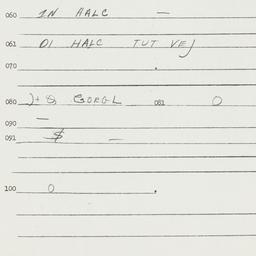 060 IN HALC —
061 OI HALC TUT VEJ
070
080 GORGL 081 O
090 —
091 $ —
100 O